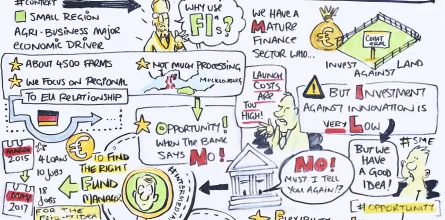 #CONTEXT
SMALL REGION
AGRI-BUSINESS MAJOR
ECONOMIC DRIVER
WHY USE
FIs?
WE HAVE A
MATURE
FINANCE
SECTOR WHO...
INVEST
AGAINST
LAND
ABOUT 4500 FARMS
WE FOCUS ON REGIONAL
TO EU RELATIONSHIP
NOT MUCH PROCESSING
LAUNCH
COSTS ARE
TOO
HIGH!
BUT INVESTMENT
AGAINST INNOVATION IS
VERY LOW
OPPORTUNITY!
WHEN THE BANK
SAYS NO!
2015
4 LOANS
10 JOBS
2017
JOBS
TO FIND
THE RIGHT
FUND
MANAGER
FOR THE
NO!
MUST I TELL
YOU AGAIN!?
#SME
BUT WE
HAVE A
GOOD
IDEA!
#OPPORTUNITY
FLEXIBILITY